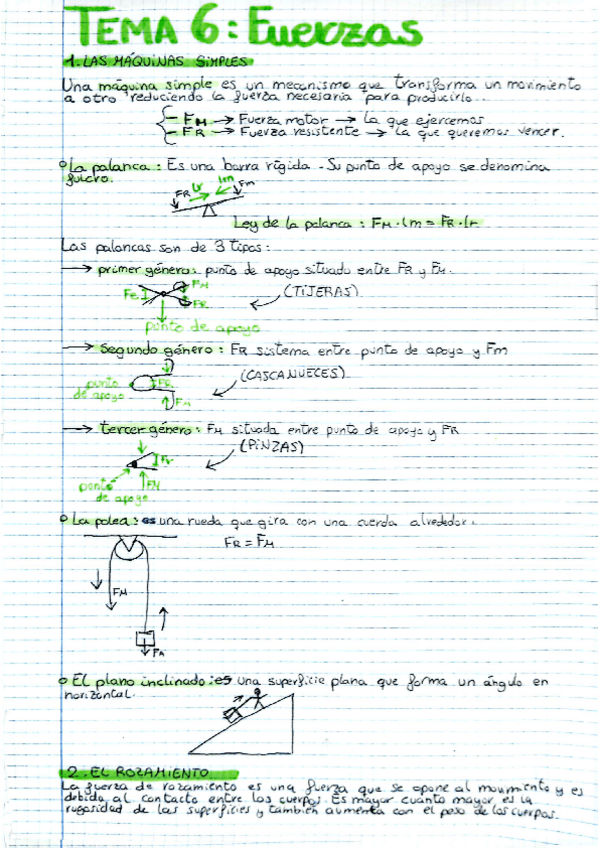 TEMA 6: Fuerzas
1. LAS MÁQUINAS SIMPLES
Una máquina simple es un mecanismo que transforma un movimiento
a otro reduciendo la fuerza necesaria para producirlo.
FM → Fuerza motor → La que ejercemos
FR → Fuerza resistente → La que queremos vencer.
La palanca: Es una barra rígida. Su punto de apoyo se denomina
fulcro.
FR lr lm Fm
Ley de la palanca: FM · lm = FR · lr
Las palancas son de 3 tipos:
→ primer género: punto de apoyo situado entre FR y FM.
FM
FR
(TIJERAS)
punto de apoyo
→ Segundo género: FR sistema entre punto de apoyo y Fm
(CASCANUECES)
punto
de apoyo
FR
FM
→ tercer género: FM situada entre punto de apoyo y FR
(PINZAS)
Fr
punto
de apoyo
FM
La polea: es una rueda que gira con una cuerda alrededor.
FR = FM
FM
El plano inclinado: es una superficie plana que forma un ángulo en
horizontal.
2. EL ROZAMIENTO
La fuerza de rozamiento es una fuerza que se opone al movimiento y es
debida al contacto entre los cuerpos. Es mayor cuanto mayor es la
rugosidad de las superficies y también aumenta con el peso de los cuerpos.